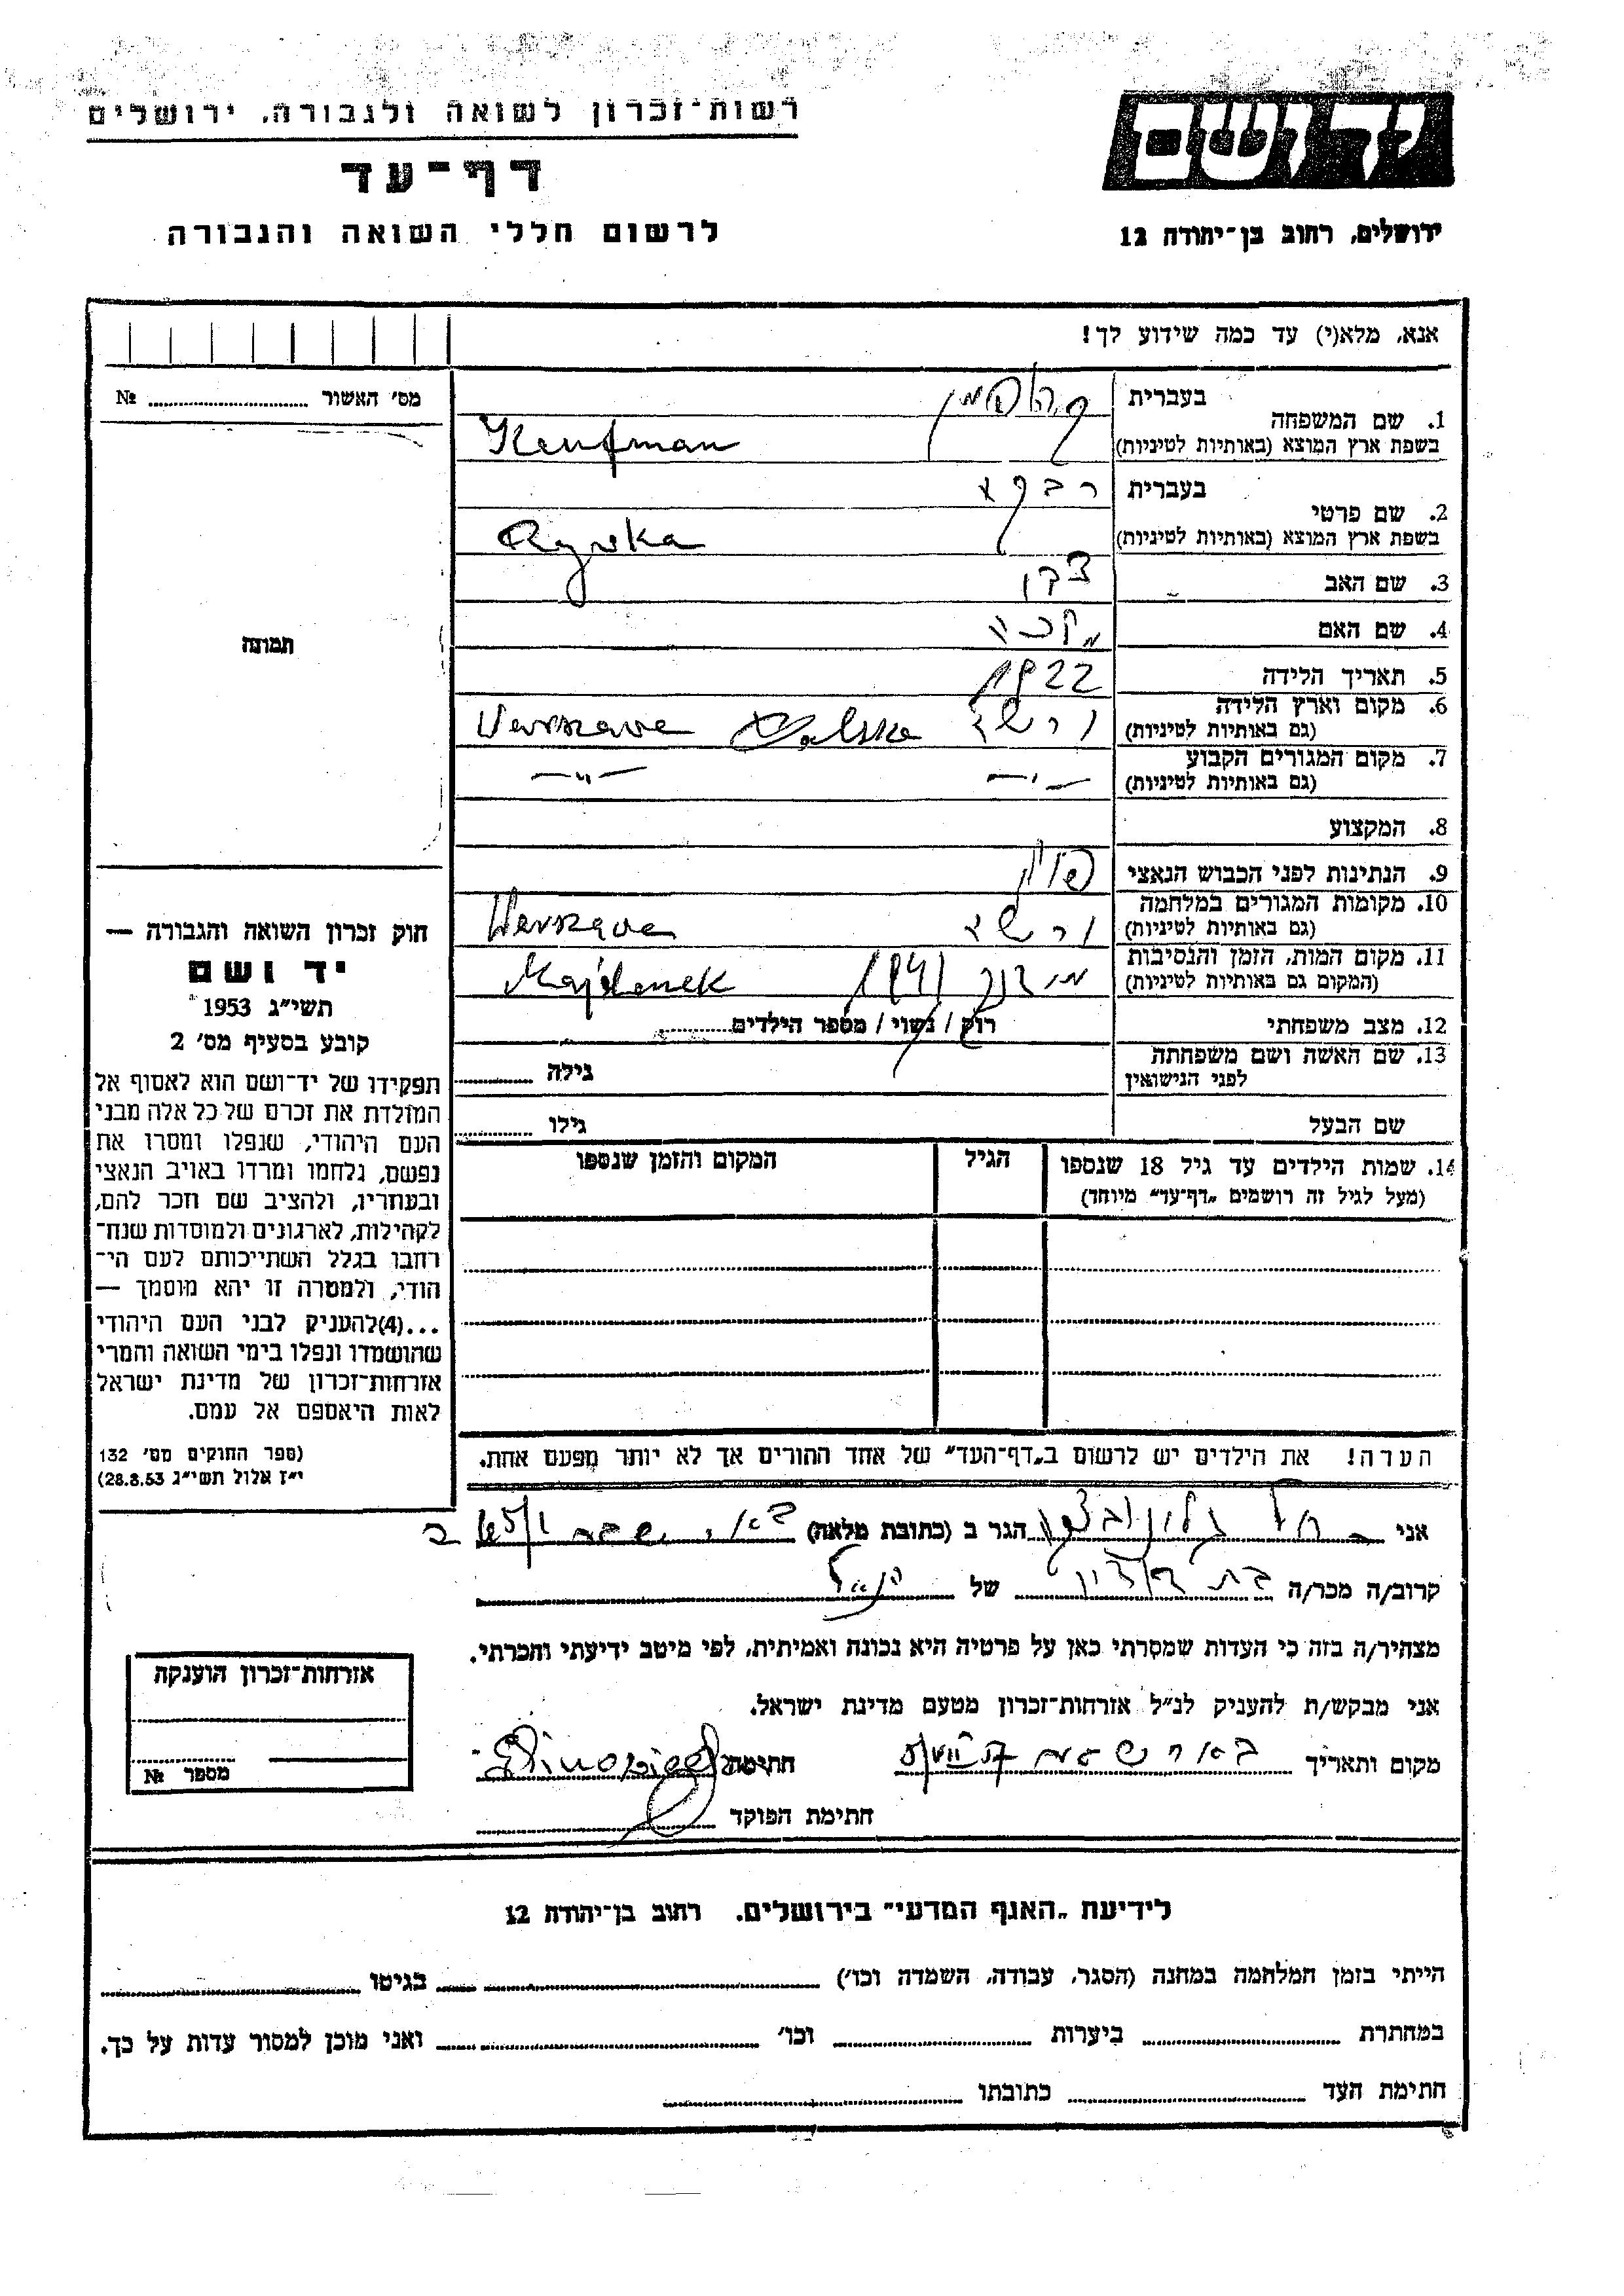 רשות־זכרון לשואה ולגבורה, ירושלים
דף־עד
לרשום חללי השואה והגבורה
יד ושם
ירושלים, רחוב בן־יהודה 12
אנא, מלא(י) עד כמה שידוע לך!
מס׳ האשור № 
תמונה
1. שם המשפחה
בעברית
בשפת ארץ המוצא (באותיות לטיניות) Kaufman
2. שם פרטי
בעברית רבקא
בשפת ארץ המוצא (באותיות לטיניות) Rywka
3. שם האב
4. שם האם מלכה
5. תאריך הלידה 1922
6. מקום וארץ הלידה ורשה Polska Warszawa
(גם באותיות לטיניות)
7. מקום המגורים הקבוע —״— —״—
(גם באותיות לטיניות)
8. המקצוע
9. הנתינות לפני הכבוש הנאצי פולין
10. מקומות המגורים במלחמה ורשה Warszawa
(גם באותיות לטיניות)
11. מקום המות, הזמן והנסיבות 1941 Majdanek
(המקום גם באותיות לטיניות)
12. מצב משפחתי רוק / נשוי / מספר הילדים
13. שם האשה ושם משפחתה גילה
לפני הנישואין
שם הבעל גילו
14. שמות הילדים עד גיל 18 שנספו הגיל המקום והזמן שנספו
(מעל לגיל זה רושמים „דף־עד״ מיוחד)
הערה! את הילדים יש לרשום ב„דף־העד״ של אחד ההורים אך לא יותר מפעם אחת.
חוק זכרון השואה והגבורה —
יד ושם
תשי״ג 1953
קובע בסעיף מס׳ 2
תפקידו של יד־ושם הוא לאסוף אל
המולדת את זכרם של כל אלה מבני
העם היהודי, שנפלו ומסרו את
נפשם, נלחמו ומרדו באויב הנאצי
ובעוזריו, ולהציב שם וזכר להם,
לקהילות, לארגונים ולמוסדות שנח־
רחבו בגלל השתייכותם לעם הי־
הודי, ולמטרה זו יהא מוסמך —
...(4)להעניק לבני העם היהודי
שהושמדו ונפלו בימי השואה והמרי
אזרחות־זכרון של מדינת ישראל
לאות היאספם אל עמם.
(ספר החוקים מס׳ 132
י״ז אלול תשי״ג 28.8.53)
אני רחל הגר ב (כתובת מלאה) באר שבע
קרוב/ה מכר/ה בת דודן של הנ״ל
מצהיר/ה בזה כי העדות שמסרתי כאן על פרטיה היא נכונה ואמיתית, לפי מיטב ידיעתי והכרתי.
אני מבקש/ת להעניק לנ״ל אזרחות־זכרון מטעם מדינת ישראל.
מקום ותאריך באר שבע חתימה
חתימת הפוקד
אזרחות־זכרון הוענקה
מספר №
לידיעת „האגף המדעי״ בירושלים, רחוב בן־יהודה 12
הייתי בזמן המלחמה במחנה (הסגר, עבודה, השמדה וכו׳) בגיטו
במחתרת ביערות וכו׳ ואני מוכן למסור עדות על כך.
חתימת העד כתובתו